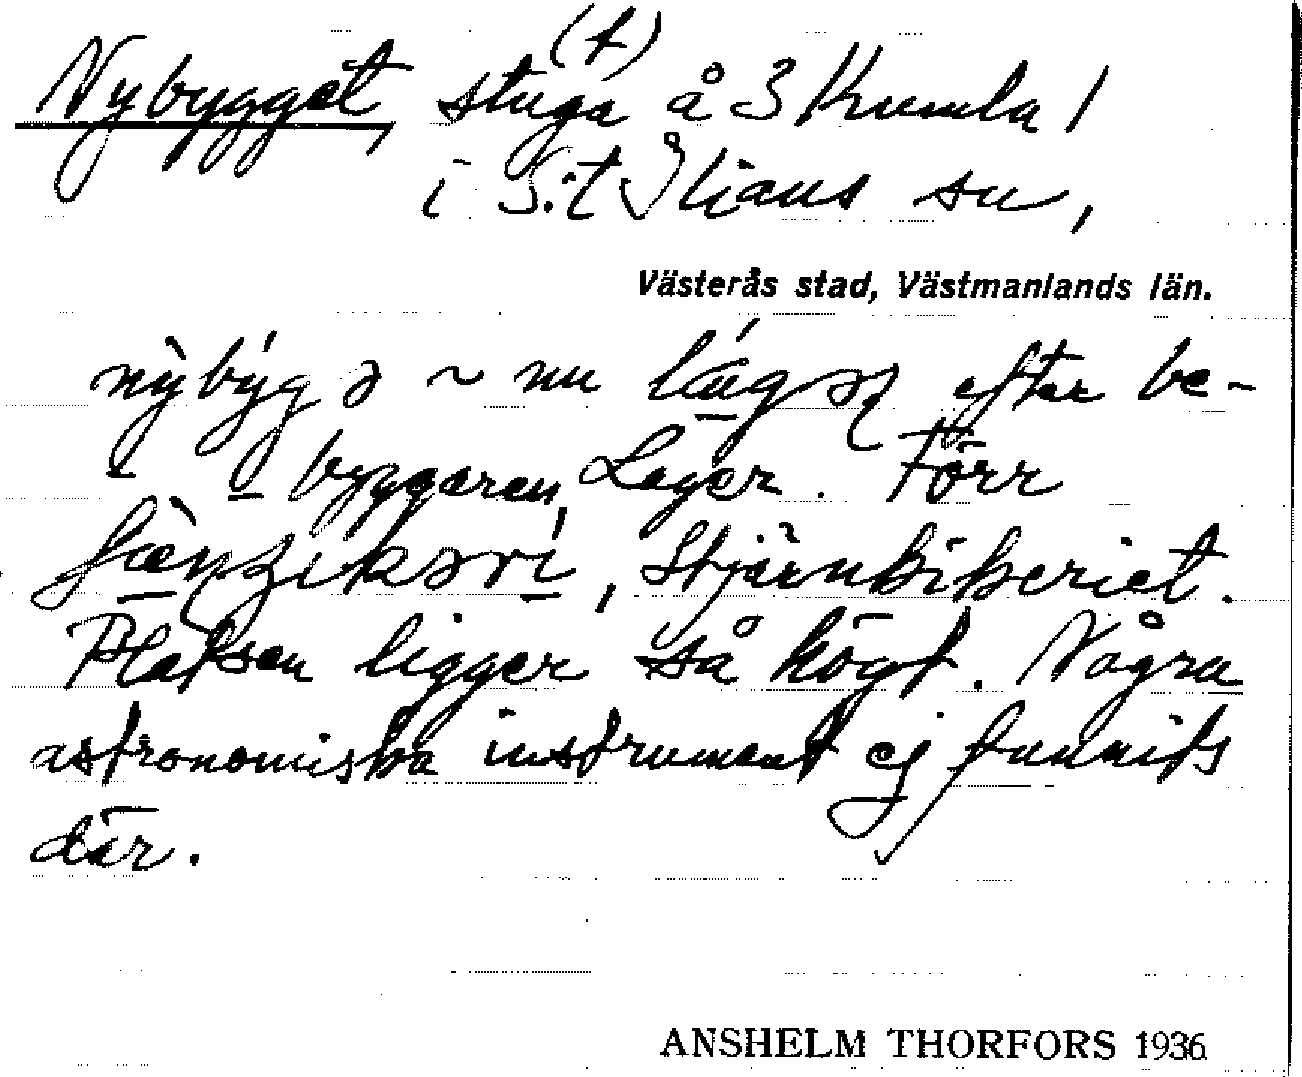 Nybygget, stuga (f) å 3 Kumla /
i S:t Ilians sn,
Västerås stad, Västmanlands län.
nu efter be-
byggaren Lager. Förr
, Stjärnkikeriet.
Platsen ligger så högt. Några
astronomiska instrument ej funnits
där.
ANSHELM THORFORS 1936